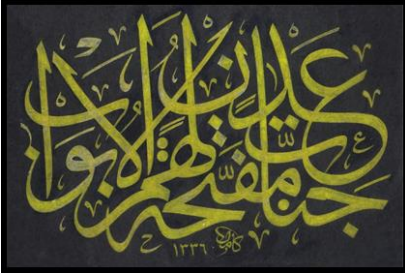 جنات عدن مفتحة لهم الابواب
كامل ١٣٣٦